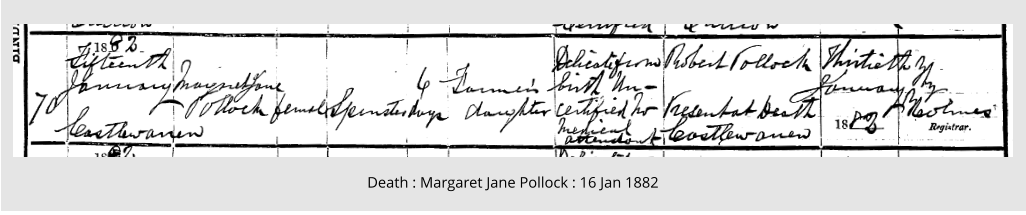 BIND
78
1882
Fifteenth
January
Castlewarren
Margret Jane
Pollock
female
Spinster
6
days
Farmer's
daughter
Delicate from
birth Un-
certified No
medical
attendant
Robert Pollock
Present at Death
Castlewarren
Thirtieth
January
1882
Holmes
Registrar.
Death : Margaret Jane Pollock : 16 Jan 1882